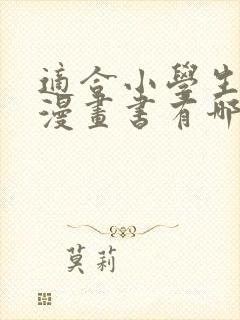 適合小學生
漫畫書有哪
莫莉